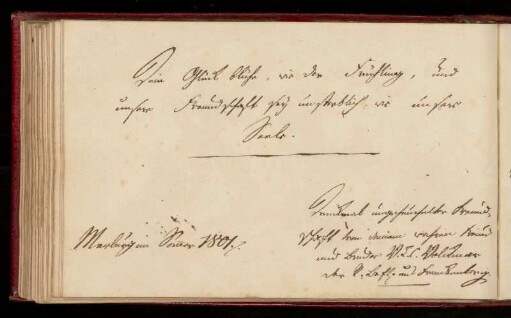 Dein Glück blühe, wie der Frühling, und
unsere Freundschaft sey unsterblich wie unsere
Seele.
Denkmal ungeheuchelter Freund-
Marburg im 1801.
schaft von deinem wahren Freund
und Bruder Volkmar
der aus Frankenberg